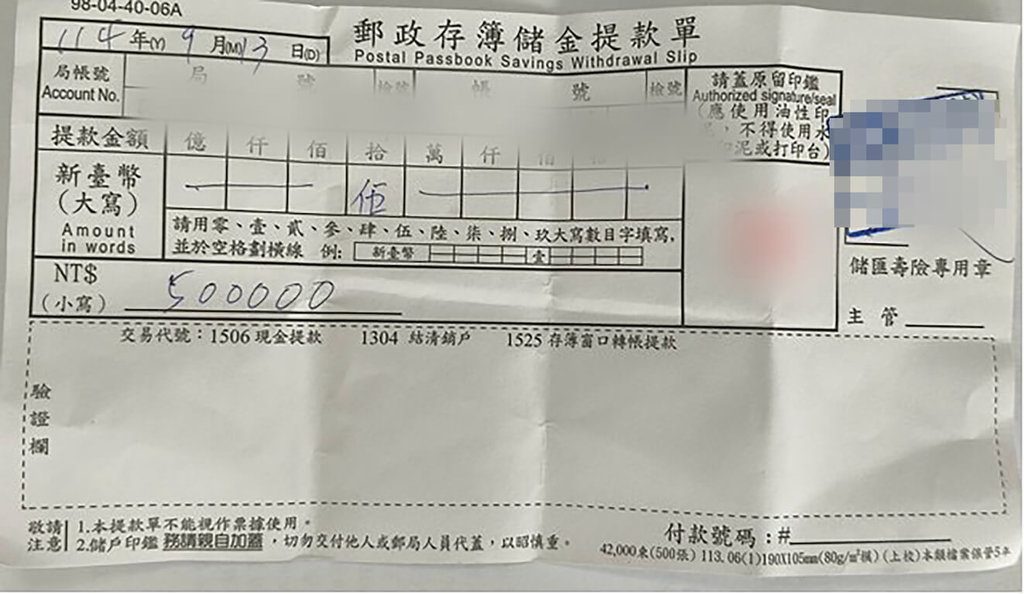 98-04-40-06A
郵政存簿儲金提款單
Postal Passbook Savings Withdrawal Slip
114 年(Y) 9 月(M) 13 日(D)
局帳號 局 號 檢號 帳 號 檢號
Account No.
請蓋原留印鑑
Authorized signature/seal
(應使用油性印
,不得使用水
泥或打印台)
提款金額 億 仟 佰 拾 萬 仟 佰
新臺幣
(大寫)
Amount
in words
伍
請用零、壹、貳、參、肆、伍、陸、柒、捌、玖大寫數目字填寫,
並於空格劃橫線 例: 新臺幣 壹
NT$
(小寫) 500000
儲匯壽險專用章
主管
交易代號:1506 現金提款 1304 結清銷戶 1525 存簿窗口轉帳提款
驗
證
欄
敬請
注意
1.本提款單不能視作票據使用。
2.儲戶印鑑 務請親自加蓋,切勿交付他人或郵局人員代蓋,以昭慎重。
付款號碼:#
42,000束(500張) 113.06(1)190X105mm(80g/m²模)(上校)本類檔案保管5年